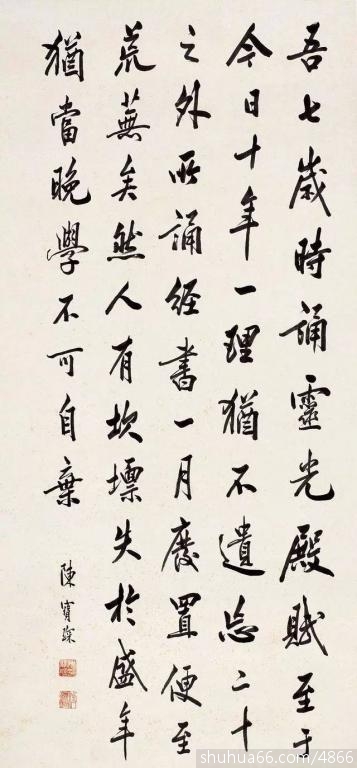 吾七歲時誦靈光殿賦至于
今日十年一理猶不遺忘二十
之外所誦經書一月廢置便至
荒蕪矣然人有坎壈失於盛年
猶當晚學不可自棄
陳寶琛
shuhua66.com/4866